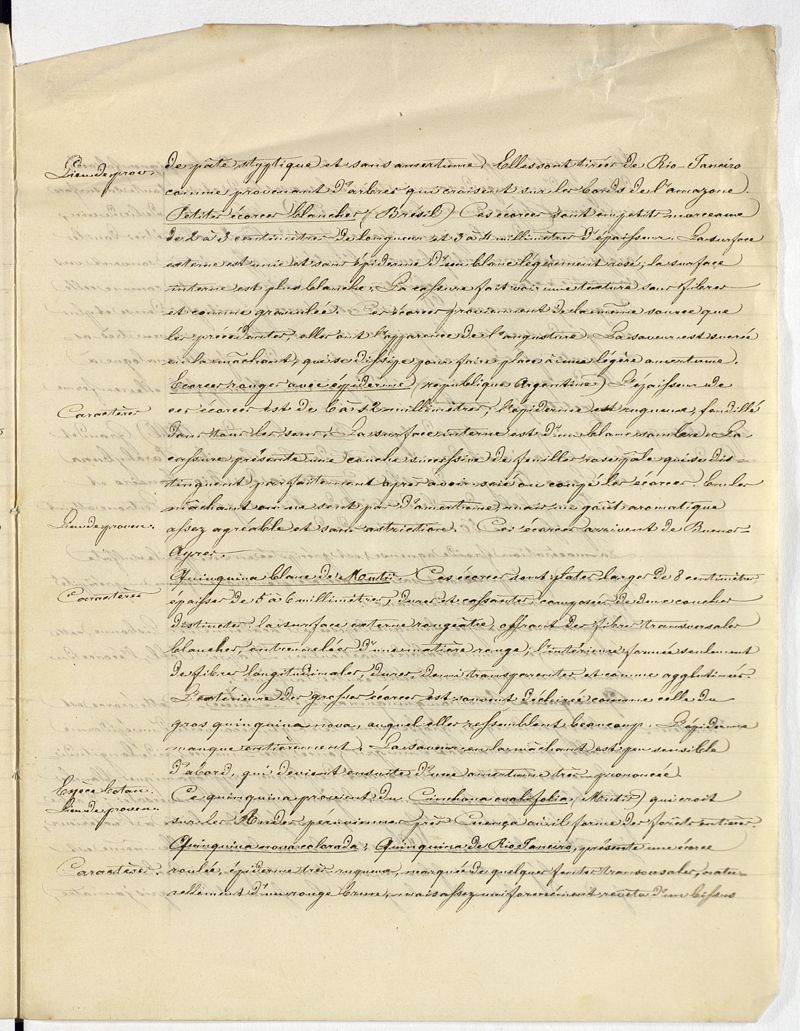 Lieu de proven.
de pâte, styptique et sans amertume, Elles sont tirées de Rio-Janeiro
comme provenant d'arbres qui croisent sur les bords de l'amazone.
Petites écorces blanches (Brésil) Ces écorces sont en petits morceaux
de 2 à 3 centimètres de longueur et 3 à 4 millimètres d'épaisseur. La surface
externe est unie et sans épiderme d'un blanc légèrement rosé; la surface
interne est plus blanche; La cassure fait voir une texture sans fibres
et comme granulée. Ces écorces proviennent de la même source que
les précédentes, elles ont l'apparence de l'angusture. La saveur est sucrée
en la mâchant, qui se dissipe pour faire place à une légère amertume.
Ecorces rouges avec épiderme (république Argentine) L'épaisseur de
Caractères
ces écorces est de 6 à 12 millimètres, l'épiderme est rugueux, fendillé
dans tous les sens; La surface interne est d'un blanc sombre. La
cassure présente une couche successive de feuilles rose pâle qui se dis-
tinguent parfaitement après avoir scié ou coupé les écorces. En les
mâchant on ne sent pas d'amertume, mais un goût aromatique
Lieu de proven.
assez agréable et sans astriction. Ces écorces arrivent de Buenos-
Ayres.
Quinquina blanc de Mutis. Ces écorces sont plates larges de 8 centimètres
Caractères
épaisses de 5 à 6 millimètres, dures et cassantes, composées de deux couches
distinctes, la surface externe rougeâtre, offrant des fibres transversales
blanches, entremêlées d'une matière rouge, l'intérieure formée seulement
de fibres longitudinales, dures, demi transparentes et comme agglutinées.
L'extérieure des grosses écorces est souvent déchirée comme celle du
gros quinquina nova, auquel elles ressemblent beaucoup. L'épiderme
manque entièrement. La saveur en la mâchant est peu sensible
d'abord, qui devient ensuite d'une amertume très-prononcée.
Espèce botan.
Ce quinquina provient du Cinchona ovalifolia, Mutis) qui croit
Lieu de proven.
sur les Andes péruviennes près Cuença où il forme des forêts entières.
Quinquina nova colorada; Quinquina de Rio Janeiro, présente une écorce
Caractères
roulée, épiderme très-rugueux, marquée de quelques fentes transversales, natu-
rellement d'un rouge brun, mais assez uniformément revêtu d'un bissus